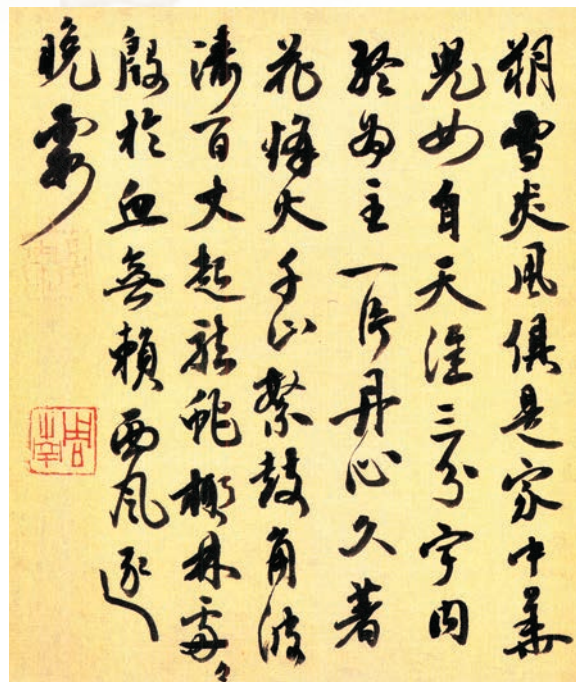 朔雪炎風俱是家中華
兒女自天涯三分宇内
終為主一片丹心久著
花烽火千山繁鼓角波
濤百丈起龍蛇楓林處々
殷於血無賴西風逐
晚霞